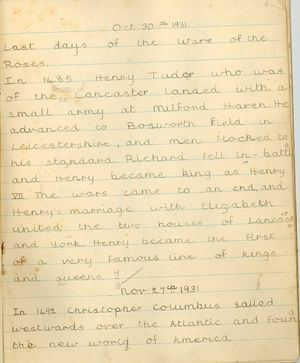 Oct: 30th 1931
Last days of the Wars of the
Roses.
In 1485 Henry Tudor who was
of the House of Lancaster landed with a
small army at Milford Haven. He
advanced to Bosworth Field in
Leicestershire, and men flocked to
his standard. Richard fell in battle
and Henry became King as Henry
VII. The wars came to an end, and
Henry's marriage with Elizabeth
united the two houses of Lancaster
and York. Henry became the first
of a very famous line of Kings
and queens.
Nov. 27th 1931
In 1492 Christopher Columbus sailed
westwards over the Atlantic and found
the new world of America.